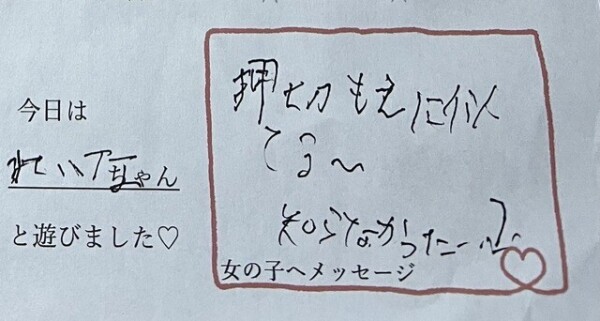 今日は
ちゃん
と遊びました♡
押切もえに似
てる〜
知らなかったー
女の子へメッセージ